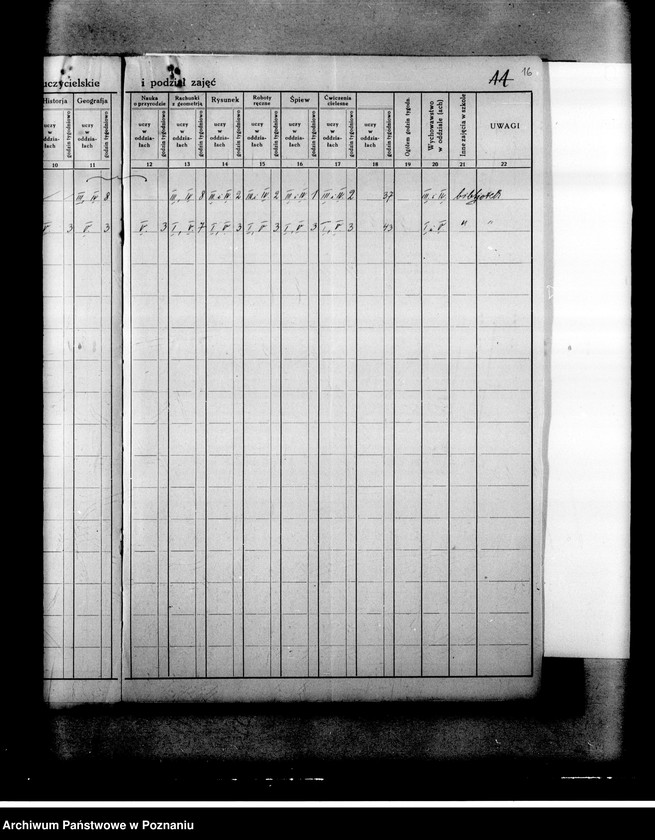 uczycielskie i podział zajęć 11 16
Historja Geografja Nauka o przyrodzie Rachunki z geometrją Rysunek Roboty ręczne Śpiew Ćwiczenia cielesne Ogółem godzin tygodn. Wychowawstwo w oddziale (ach) Inne zajęcia w szkole UWAGI
uczy w oddzia- łach godzin tygodniowo uczy w oddzia- łach godzin tygodniowo uczy w oddzia- łach godzin tygodniowo uczy w oddzia- łach godzin tygodniowo uczy w oddzia- łach godzin tygodniowo uczy w oddzia- łach godzin tygodniowo uczy w oddzia- łach godzin tygodniowo uczy w oddzia- łach godzin tygodniowo uczy w oddzia- łach godzin tygodniowo
10 11 12 13 14 15 16 17 18 19 20 21 22
III, IV 8 III, IV 8 III i IV 2 III i IV 2 III i IV 1 III i IV 2 37 III i IV
V 3 V 3 V 3 I, V 7 I, V 3 I, V 3 I, V 3 I, V 3 43 I, V " "
Archiwum Państwowe w Poznaniu